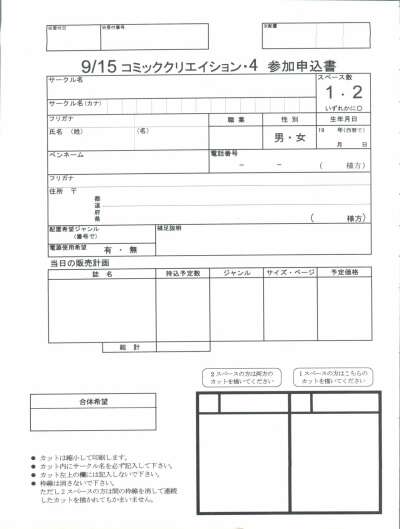 受付日付
台帳の番号
示配置
9/15 コミッククリエイション・4 参加申込書
サークル名
スペース数
1・2
いずれかに○
サークル名(カナ)
フリガナ
職業
性別
生年月日
氏名 (姓)
(名)
男・女
19 年(西暦で)
月 日
ペンネーム
電話番号
- -
( 様方)
フリガナ
住所 〒
都
道
府
県
( 様方)
配置希望ジャンル
(番号で)
補足説明
電源使用希望
有・無
当日の販売計画
誌名
持込予定数
ジャンル
サイズ・ページ
予定価格
総計
2スペースの方は両方の
カットを描いてください
1スペースの方はこちらの
カットを描いてください
合体希望
● カットは縮小して印刷します。
● カット内にサークル名を必ず記入して下さい。
● カット左上の欄には記入しないで下さい。
● 枠線は消さないで下さい。
ただし2スペースの方は間の枠線を消して連続
したカットを描かれてもかまいません。